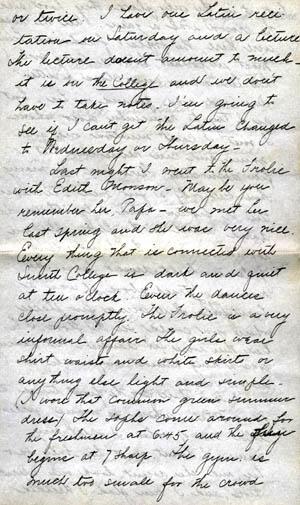 or twice. I have one Latin reci-
tation on Saturday and a lecture
The lecture doesn't amount to much -
it is on the College and we don't
have to take notes. I'm going to
see if I can't get the Latin changed
to Wednesday or Thursday -
Last night I went to the Frolic
with Edith Monson - May be you
remember her Papa - we met her
last spring and she was very nice
Every thing that is connected with
Smith College is dark and quiet
at ten o'clock. Even the dances
close promptly. The Frolic is a very
informal affair. The girls wear
shirt waists and white skirts or
anything else light and simple -
(I wore that common green summer
dress) The sophs come around for
the freshmen at 6:45, and the
begins at 7 sharp. The gym. is
much too small for the crowd